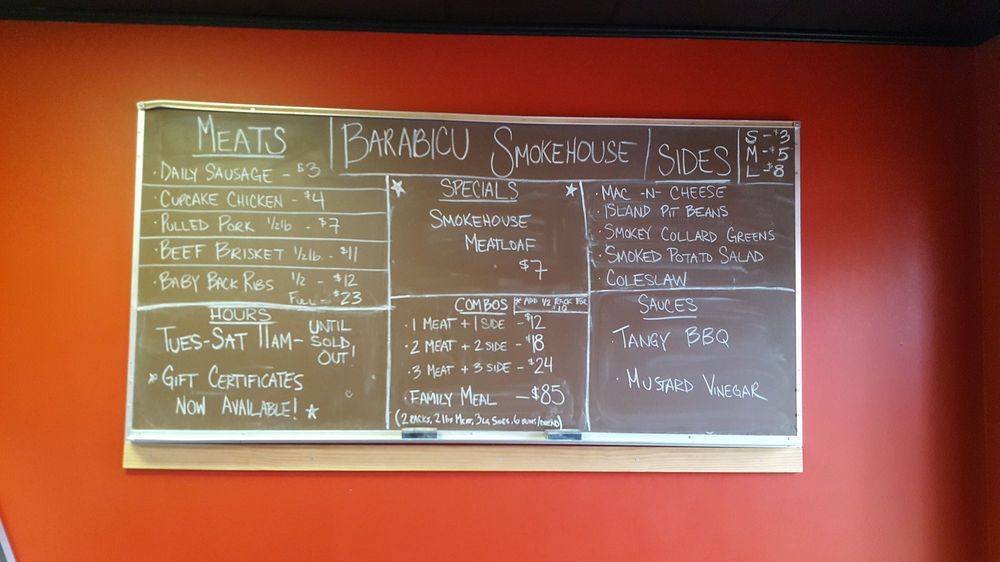 MEATS
· DAILY SAUSAGE - $3
· CUPCAKE CHICKEN - $4
· PULLED PORK 1/2 lb. - $7
· BEEF BRISKET 1/2 lb. - $11
· BABY BACK RIBS 1/2 - $12
FULL - $23
HOURS
TUES-SAT 11AM- UNTIL
SOLD
OUT!
* GIFT CERTIFICATES
NOW AVAILABLE! ★
BARABICU SMOKEHOUSE
★ SPECIALS ★
SMOKEHOUSE
MEATLOAF
$7
COMBOS
* ADD 1/2 RACK FOR
$10
· 1 MEAT + 1 SIDE - $12
· 2 MEAT + 2 SIDE - $18
· 3 MEAT + 3 SIDE - $24
· FAMILY MEAL - $85
(2 RACKS, 2 lbs MEAT, 3 LG SIDES, 6 BUNS/BREAD)
SIDES
S - $3
M - $5
L - $8
· MAC -N- CHEESE
· ISLAND PIT BEANS
· SMOKEY COLLARD GREENS
· SMOKED POTATO SALAD
· COLESLAW
SAUCES
· TANGY BBQ
· MUSTARD VINEGAR